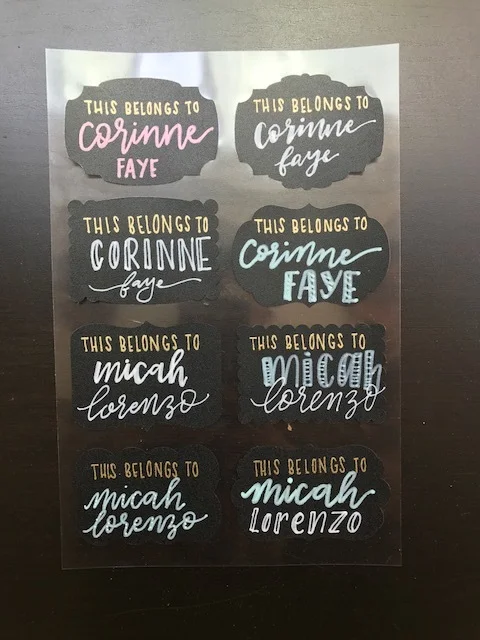 THIS BELONGS TO
corinne
FAYE
THIS BELONGS TO
Corinne
faye
THIS BELONGS TO
CORINNE
faye
THIS BELONGS TO
Corinne
FAYE
THIS BELONGS TO
micah
lorenzo
THIS BELONGS TO
micah
lorenzo
THIS BELONGS TO
micah
lorenzo
THIS BELONGS TO
micah
Lorenzo